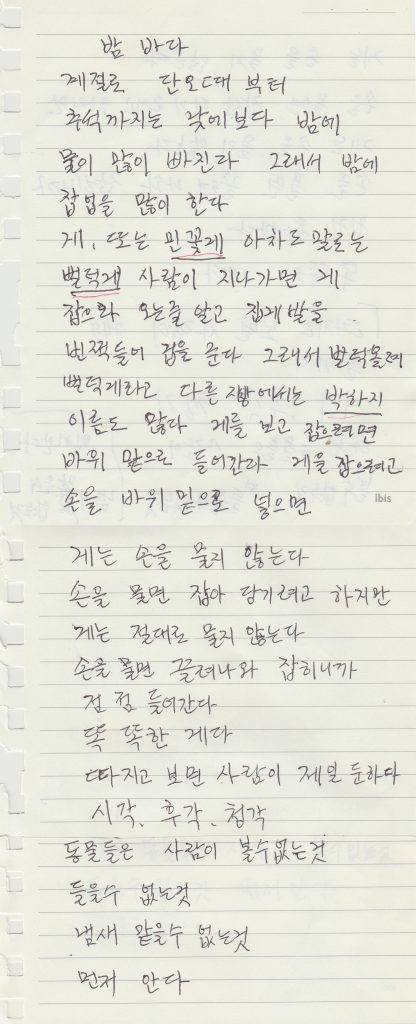 밤 바다
계절로 단오대 부터
추석까지는 낮에보다 밤에
물이 많이 빠진다 그래서 밤에
잡업을 많이 한다
게, 또는 민꽃게 아차도 말로는
뻘덕게 사람이 지나가면 게
잡으와 오는줄 알고 집게발을
번쩍들어 겁을 준다 그래서 벌럭올려
뻔덕게라고 다른 지방에서는 박하지
이름도 많다 게를 보고 잡으려면
바위 밑으로 들어간다 게을 잡으려고
손을 바위 밑으로 넣으면
ibis
게는 손을 물지 않는다
손을 물면 잡아 당기려고 하지만
게는 절대로 물지 않는다
손을 물면 끌려나와 잡히니까
점 점 들어간다
똑 똑한 게다
따지고 보면 사람이 제일 둔하다
시각, 후각, 청각
동물들은 사람이 볼수없는것
들을수 없는것
냄새 맡을수 없는것
먼저 안다